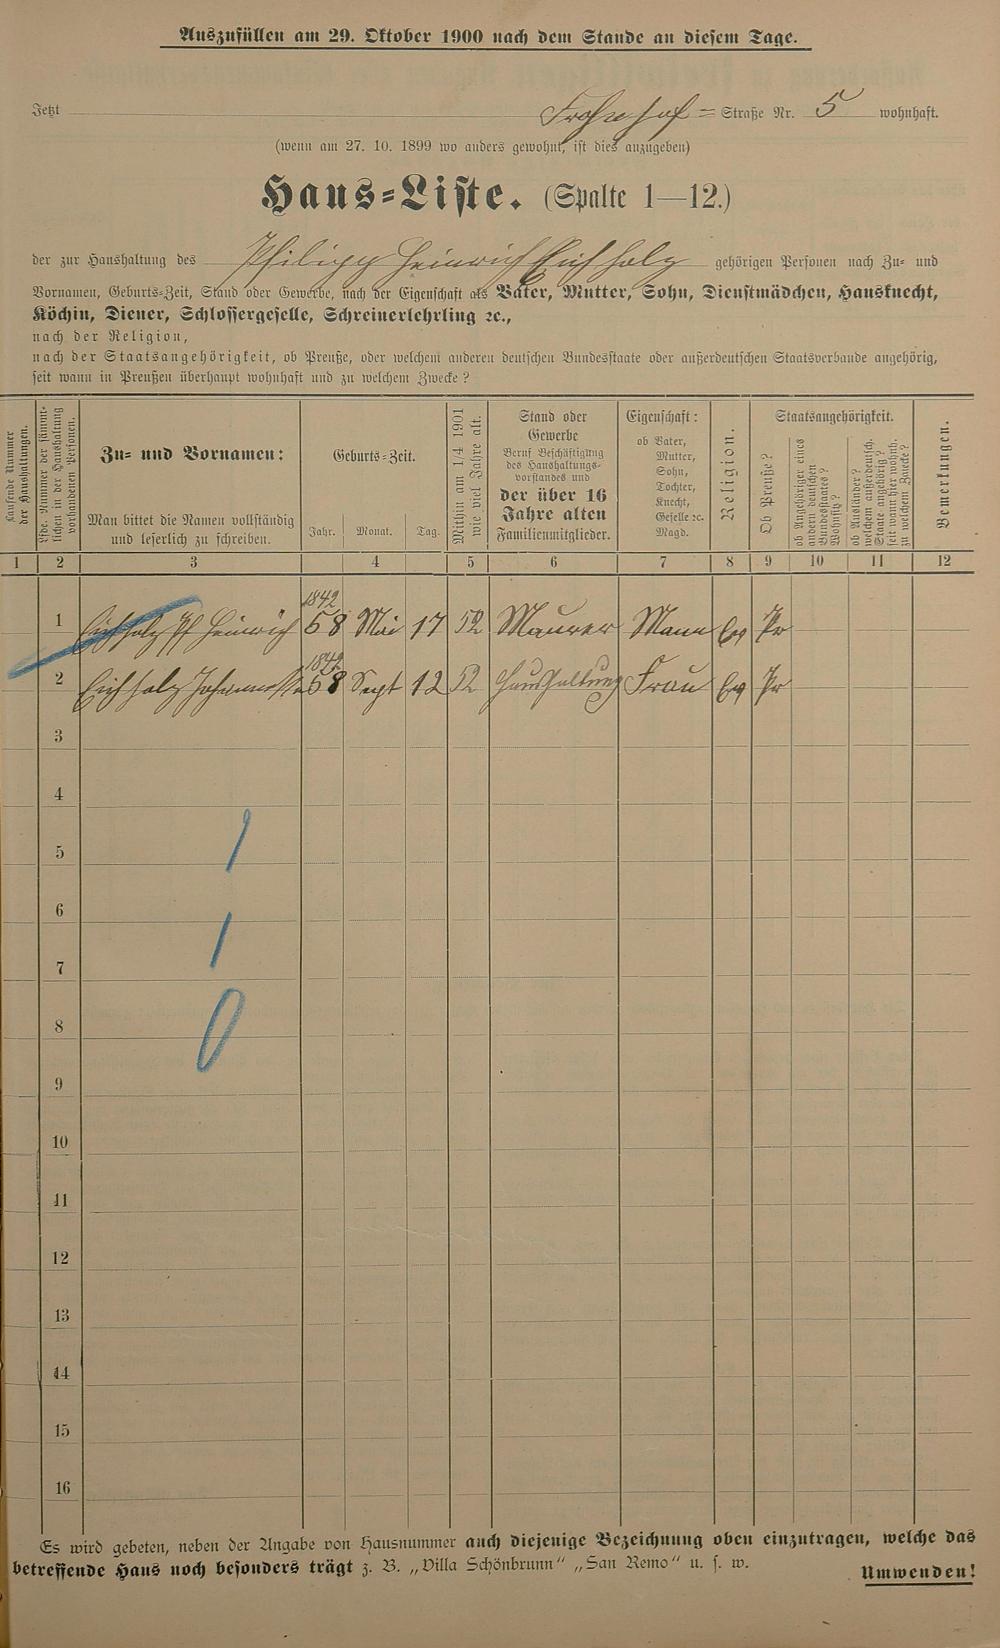 Auszufüllen am 29. Oktober 1900 nach dem Stande an diesem Tage.
Jetzt Frohnhof = Straße Nr. 5 wohnhaft.
(wenn am 27. 10. 1899 wo anders gewohnt, ist dies anzugeben)
Haus=Liste. (Spalte 1—12.)
der zur Haushaltung des Philipp Heinrich Eichholz gehörigen Personen nach Zu= und
Vornamen, Geburts=Zeit, Stand oder Gewerbe, nach der Eigenschaft als Vater, Mutter, Sohn, Dienstmädchen, Hausknecht,
Köchin, Diener, Schlossergeselle, Schreinerlehrling ꝛc.,
nach der Religion,
nach der Staatsangehörigkeit, ob Preuße, oder welchem anderen deutschen Bundesstaate oder außerdeutschen Staatsverbande angehörig,
seit wann in Preußen überhaupt wohnhaft und zu welchem Zwecke?
Laufende Nummer
der Haushaltungen.
Lfde. Nummer der sämmt=
lichen in der Haushaltung
vorhandenen Personen.
Zu= und Vornamen:
Man bittet die Namen vollständig
und leserlich zu schreiben.
Geburts=Zeit.
Jahr. Monat. Tag.
Mithin am 1/4 1901
wie viel Jahre alt.
Stand oder
Gewerbe
Beruf Beschäftigung
des Haushaltungs=
vorstandes und
der über 16
Jahre alten
Familienmitglieder.
Eigenschaft:
ob Vater,
Mutter,
Sohn,
Tochter,
Knecht,
Geselle ꝛc.
Magd.
Religion.
Staatsangehörigkeit.
Ob Preuße?
ob Angehöriger eines
andern deutschen
Bundesstaates?
Wohnsitz?
ob Ausländer?
welchem außerdeutsch.
Staate angehörig?
seit wann hier wohnh.
zu welchem Zwecke?
Bemerkungen.
1 2 3 4 5 6 7 8 9 10 11 12
1842
1 Eichholz Ph Heinrich 58 Mai 17 52 Maurer Mann Ev Pr
1842
2 Eichholz 58 Sept 12 52 Haushaltung Frau Ev Pr
3
4
5 1
6
7 1
8 0
9
10
11
12
13
14
15
16
Es wird gebeten, neben der Angabe von Hausnummer auch diejenige Bezeichnung oben einzutragen, welche das
betreffende Haus noch besonders trägt z. B. „Villa Schönbrunn“ „San Remo“ u. s. w.
Umwenden!